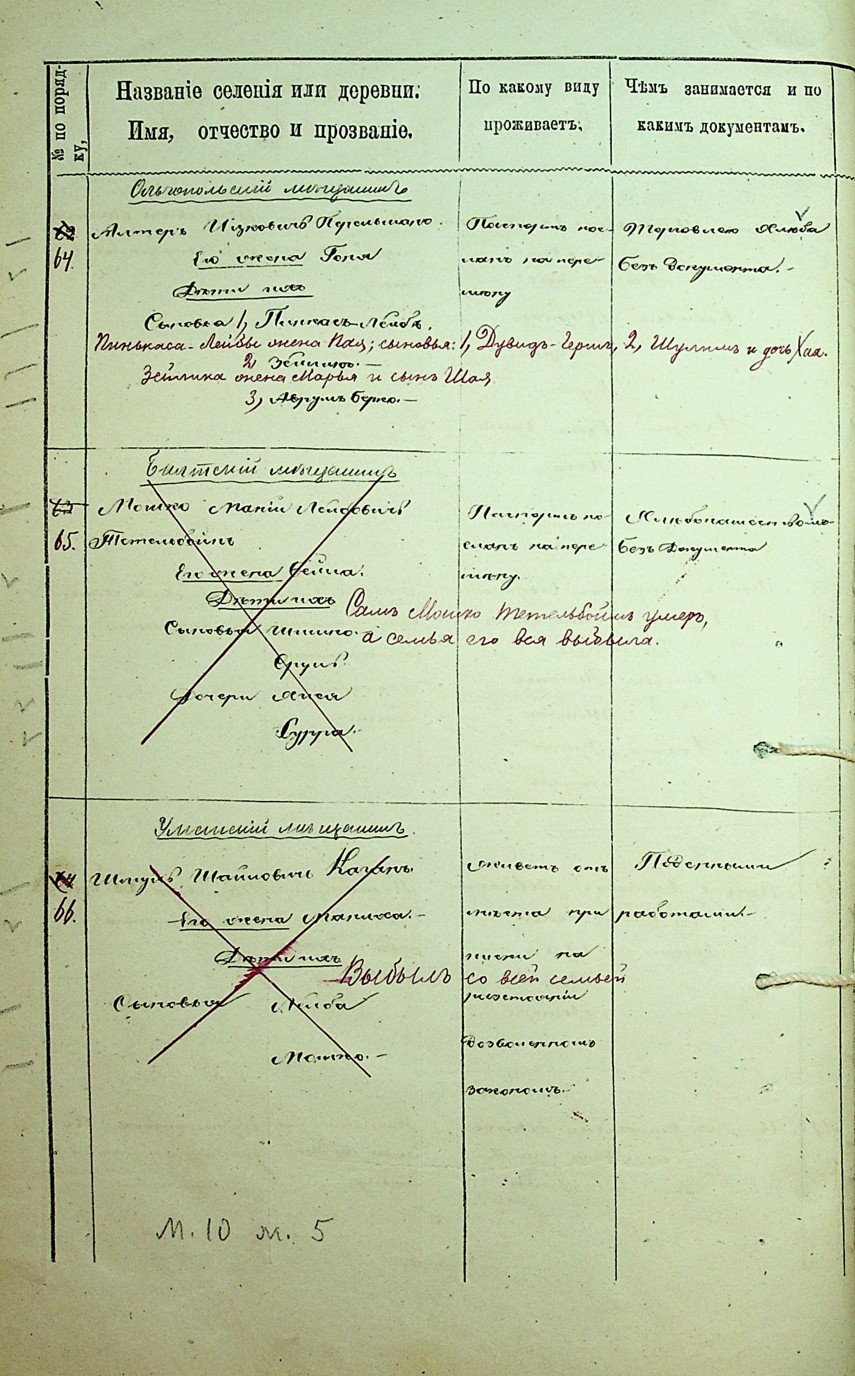 № по поряд-
ку,
Названіе селенія или деревни.
Имя, отчество и прозваніе.
По какому виду
проживаетъ.
Чѣмъ занимается и по
какимъ документамъ.
Ольгопольскій мѣщанинъ
64.
Алтеръ Ицковичъ
Его жена
Дѣти ихъ
Сыновья 1, Пинкасъ-Лейбъ.
Пинькаса-Лейбы жена; сыновья: 1, Дувидъ-Гершъ, 2, Шулимъ и дочь Хая.
2,
Зейлика жена Марья и сынъ Шая
3, Аврумъ Берко.—
Паспортъ пос-
ланъ на пере-
мѣну
Торговлею хлѣба
безъ документа.—
Балтскій мѣщанинъ
65.
Мошко Лейбовичъ
Тетельбоймъ
Его жена Бейла.
Дѣти ихъ
Сыновья
Сруль
Дочери Хася
Сура.
Самъ Мошко Тетельбоймъ умеръ,
а семья его вся выбыла.
Паспортъ по-
сланъ на пере-
мѣну.
Хлѣбопашествомъ
безъ документа
Уманскій мѣщанинъ.
66.
Шмуль Каганъ.
Его жена
Дѣти ихъ
Сыновья Лейба
Мошко.—
Выбылъ со всей семьей
Живетъ отъ
мѣста при
писки на
разстояніи
дозволенномъ
закономъ.
Поденными
работами.—
М. 10 ж. 5